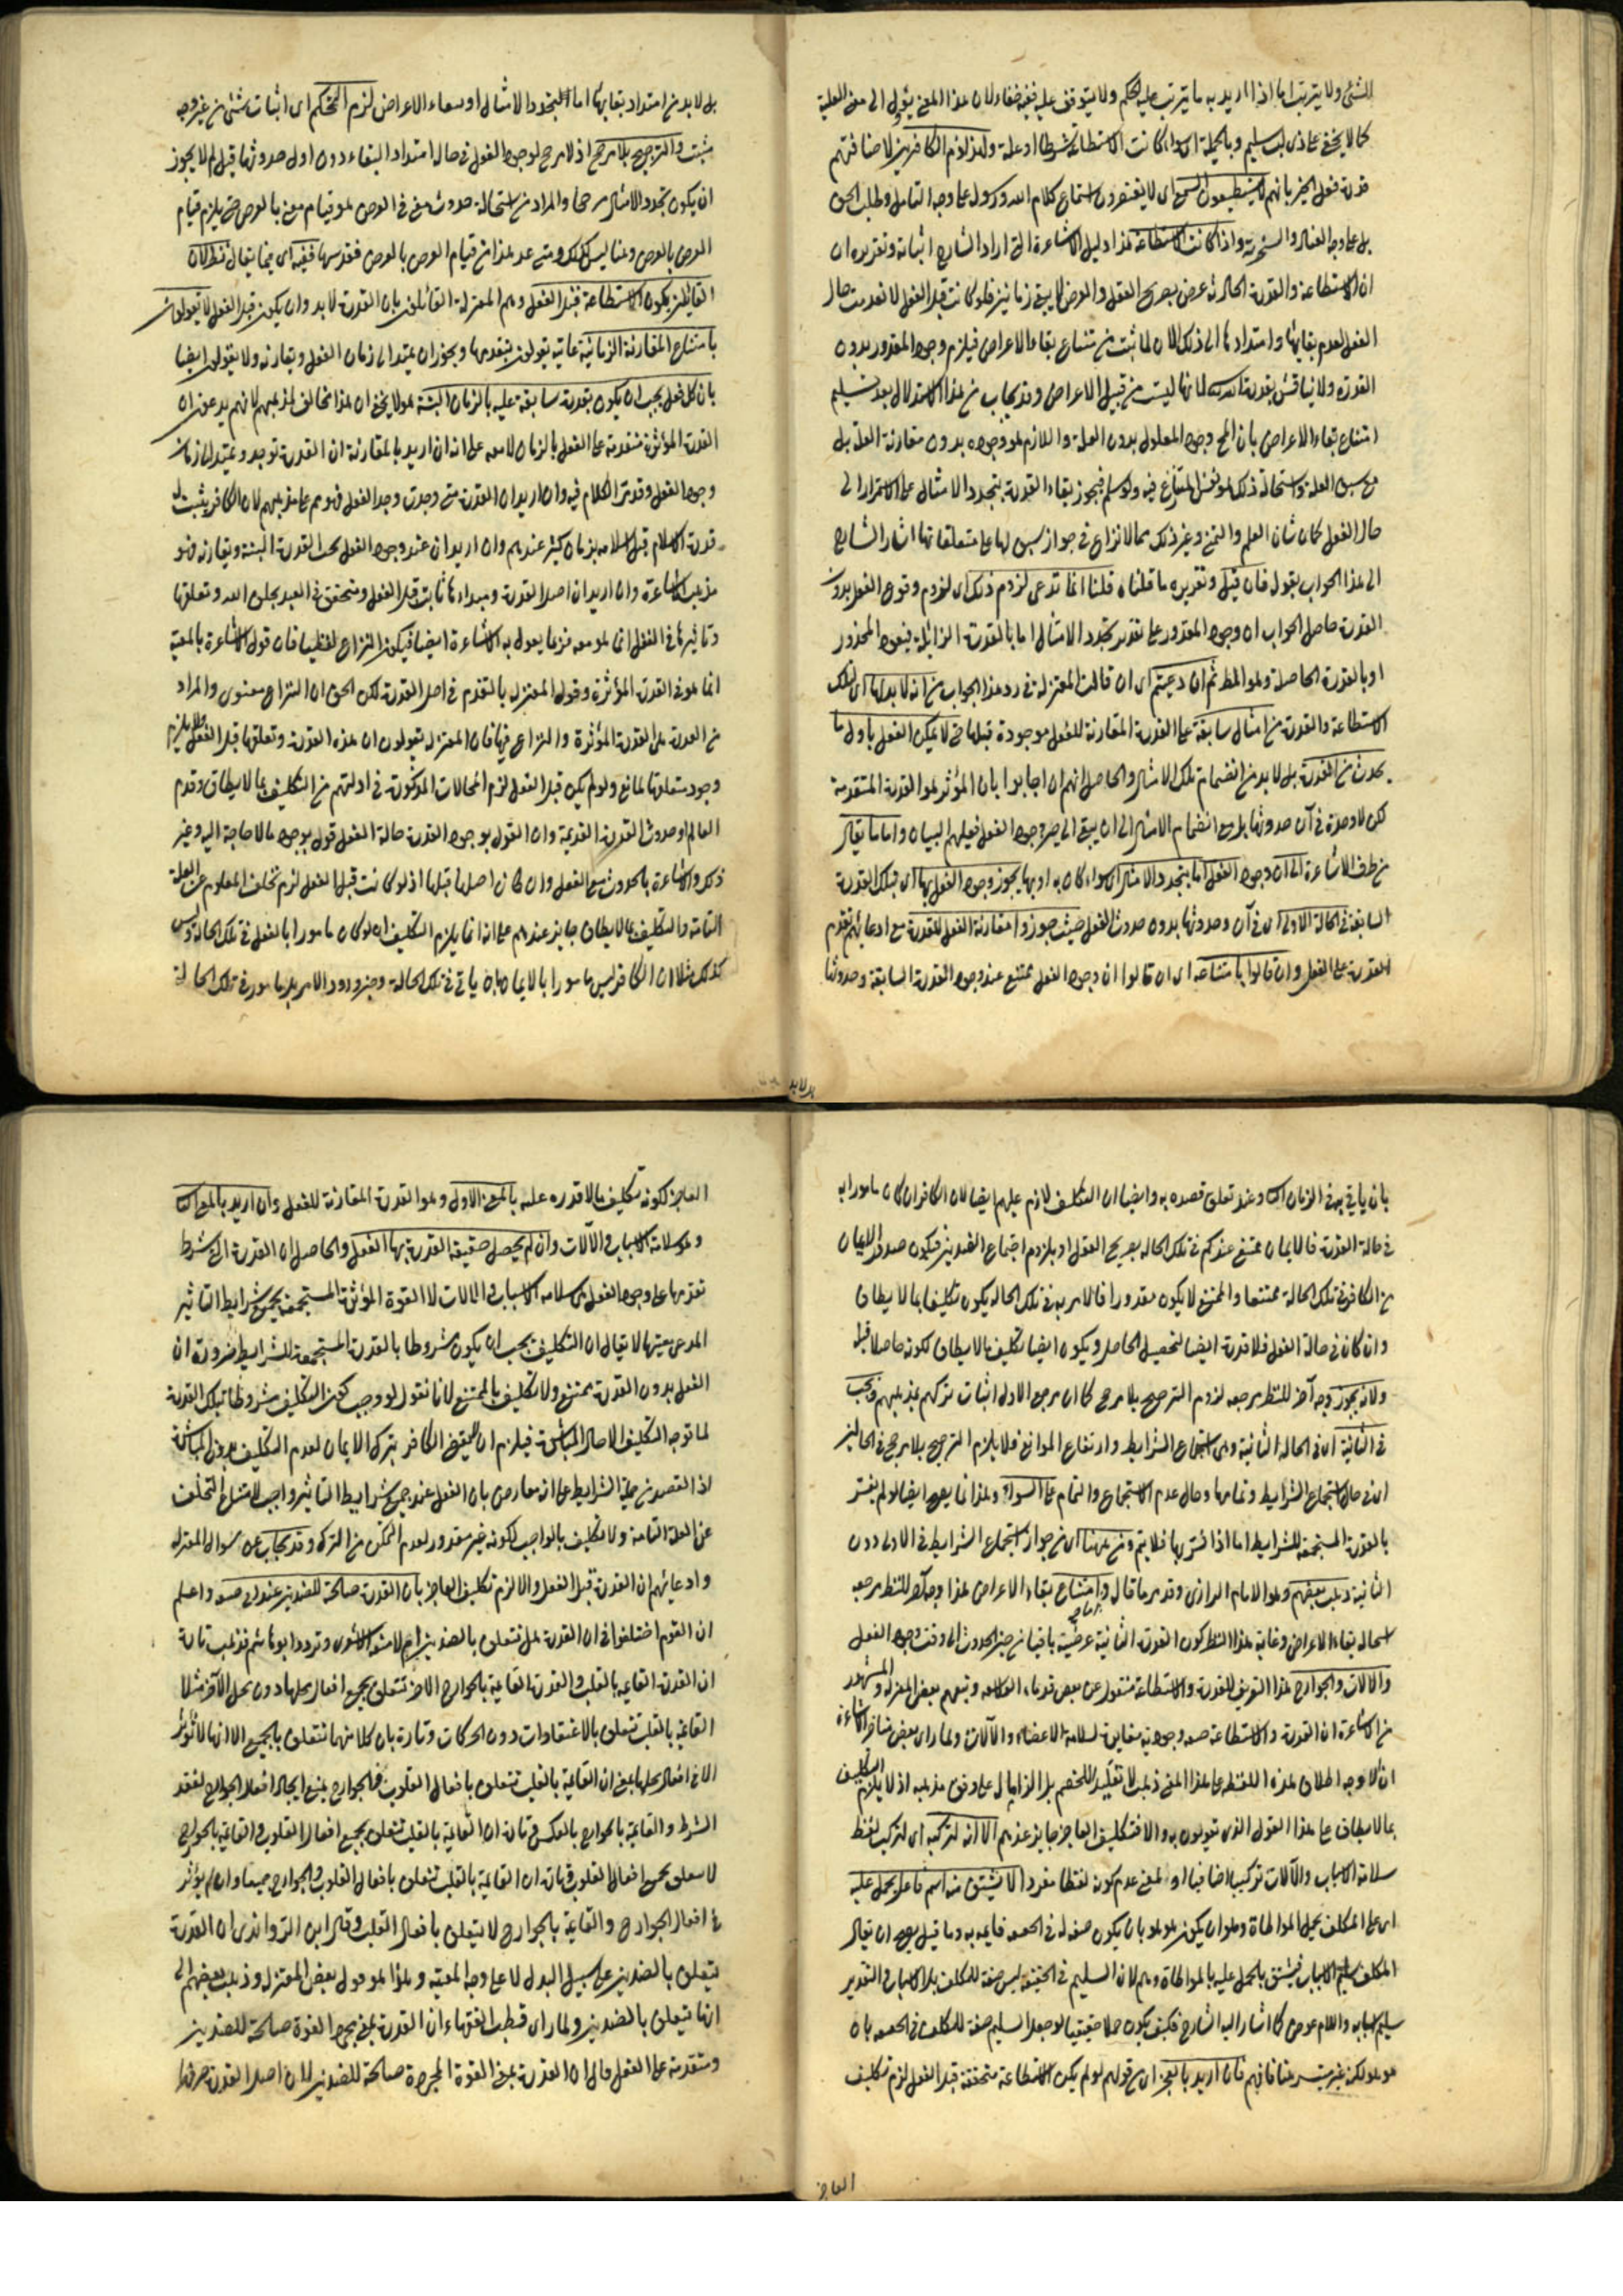 للشئ ولا يترتب اما اذا اريد به ما يترتب عليه الحكم ولا يتوقف عليه ففيه خفاء لان هذا المعنى يؤل الى معنى العلية
كما لا يخفى على ذى لب سليم وبالجملة اى سواء كانت الاستطاعة شرطا او علة ولهذا لزوم الكافرين لاضاعتهم
قدرة فعل الخير بانهم لا يستطيعون السمع اى لا يقتدرون استماع كلام الله ورسوله على وجه التامل وطلب الحق
بل على وجه العناد والسخرية واذا كانت الاستطاعة هذا دليل الاشاعرة الذى اراد الشارح اثباته وتقريره ان
ان الاستطاعة والقدرة الحادثة عرض بصريح العقل والعرض لا يبقى زمانين فلو كانت قبل الفعل لانعدمت حال
الفعل لعدم بقائها وامتدادها الى ذلك الان لما ثبت من امتناع بقاء الاعراض فيلزم وجود المقدور بدون
القدرة ولا يناقض بقدرة الله لانها ليست من قبيل الاعراض وقد يجاب من هذا الاستدلال بعد تسليم
امتناع بقاء الاعراض بان المح وجود المعلول بدون العلة واللازم هو وجوده بدون مقارنة العلة بل
مع سبق العلة واستحالة ذلك هو نفس المتنازع فيه ولو سلم فيجوز بقاء القدرة بتجدد الامثال على الاستمرار الى
حال الفعل كما كان شان العلم والتمنى وغير ذلك مما لا نزاع فى جواز سبق لها على متعلقاتها اشار الشارح
الى هذا الجواب بقوله فان قيل وتقريره ما قلناه قلنا انما ندعى لزوم ذلك اى لزوم وقوع الفعل بدون
القدرة حاصل الجواب ان وجود المقدور على تقدير تجدد الامثال اما بالقدرة الزائلة فيعود المحذور
او بالقدرة الحاصلة وهو المط ثم ان دعيتم اى ان قالت المعتزلة فى رد هذا الجواب من انه لا بد لها اى لتلك
الاستطاعة والقدرة من امثال سابقة على القدرة المقارنة للفعل موجودة قبلها حتى لا يمكن الفعل باول ما
يحدث من القدرة بل لا بد من انضمام تلك الامثال والحاصل انهم ان اجابوا بان المؤثر هو القدرة المتقدمة
لكن لا وحدة فى آن حدوثها بل مع انضمام الامثال الى ان يبقى الى حين وجود الفعل فعليهم البيان واما ما يقال
من طرف الاشاعرة الى ان وجود الفعل اما بتجدد الامثال سواء كان به او بها يجوز وجود الفعل بها اى بتلك القدرة
السابقة فى الحالة الاولى اى فى آن حدوثها بدون حدوث الفعل حيث جوزوا مقارنة الفعل للقدرة مع ادعائهم تقدم
القدرة على الفعل وان قالوا بامتناعه اى ان قالوا ان وجود الفعل ممتنع عند وجود القدرة السابقة وحدوثها
بل لا بد
بل لا بد من امتداد بقائها اما بتجدد الامثال او ببقاء الاعراض لزم التحكم اى اثبات شئ من غير وجه
مثبت والترجيح بلا مرجح اذ لا مرجح لوجود الفعل فى حال امتداد البقاء دون اول حدوثها قيل لم لا يجوز
ان يكون تجدد الامثال مرجحا والمراد من استحالة حدوث معنى فى العرض هو قيام معنى بالعرض حتى يلزم قيام
العرض بالعرض وهنا ليس كذلك ومتى عد هذا من قيام العرض بالعرض فقد سها ففيه اى فيما يقال نظر لان
القائلين بكون الاستطاعة قبل الفعل وهم المعتزلة القائلون بان القدرة لا بد وان يكون قبل الفعل لا يقولون
بامتناع المقارنة الزمانية غايته يقولون بتقدمها ويجوز ان يمتد الى زمان الفعل ويقارنه ولا يقولون ايضا
بان كل فعل يجب ان يكون بقدرة سابقة عليه بالزمان البتة هو لا يخفى ان هذا مخالف لمذهبهم لانهم يدعون ان
القدرة المؤثرة متقدمة على الفعل بالزمان لا معه على انه ان اريد بالمقارنة ان القدرة توجد ويمتد الى زمان
وجود الفعل وقد مر الكلام فيه وان اريد ان القدرة متى وجدت وجد الفعل فهو مع على مذهبهم لان الكافر يثبت له
قدرة الاسلام قبل اسلامه بزمان كثير عندهم وان اريد ان عند وجود الفعل يحدث القدرة البتة ويقارنه فهو
مذهب الاشاعرة وان اريد ان اصل القدرة ومبداءها ثابت قبل الفعل ومتحقق فى العبد بخلق الله وتعلقها
وتاثيرها فى الفعل انما هو معه فربما يعول به الاشاعرة ايضا فيكون النزاع لفظيا فان قول الاشاعرة بالمعية
انما هو فى القدرة المؤثرة وقول المعتزلة بالتقدم فى اصل القدرة لكن الحق ان النزاع معنوى والمراد
من القدرة هى القدرة المؤثرة والنزاع فيها فان المعتزلة يقولون ان هذه القدرة وتعلقها قبل الفعل لئلا يلزم
وجود متعلقها لمانع ولو لم يكن قبل الفعل لزم المحالات المذكورة فى ادلتهم من التكليف بما لا يطاق وقدم
العالم او حدوث القدرة القديمة وان القول بوجود القدرة حالة الفعل قول بوجود ما لا حاجة اليه وغير
ذلك والاشاعرة بالحدوث مع الفعل وان كان اصلها قبلها اذ لو كانت قبل الفعل لزم تخلف المعلوم عن العلة
التامة والتكليف بما لا يطاق جايز عندهم على انه انما يلزم التكليف ان لو كان مامورا بالفعل فى تلك الحالة وليس
كذلك مثلا ان الكافر ليس مامورا بالايمان بان ياتى فى تلك الحالة وحين ورود الامر بل مامور فى تلك الحالة
بان ياتى به فى الزمان الثانى وعند تعلق قصده به وايضا ان التكليف لازم عليهم ايضا لان الكافر ان كان مامورا به
فى حالة القدرة فالايمان ممتنع عندكم فى تلك الحالة بصريح العقل او يلزم اجتماع الضدين فيكون صدور الايمان
من الكافر فى تلك الحالة ممتنعا والممتنع لا يكون مقدورا فالامر به فى تلك الحالة يكون تكليفا بما لا يطاق
وان كان فى حالة الفعل فلا قدرة ايضا لتحصيل الحاصل ويكون ايضا تكليف بما لا يطاق لكونه حاصلا قبل
ولانه يجوز وجه آخر للنظر مرجعه لزوم الترجيح بلا مرجح كما ان مرجع الاول اثبات تركهم مذهبهم فيجب
فى الثانية اى فى الحالة الثانية وهى استجماع الشرايط وارتفاع الموانع فلا يلزم الترجيح بلا مرجح فى الحالين
اى فى حال استجماع الشرايط وتمامها وحال عدم الاستجماع والتمام على السواء وهذا انما يصح ايضا لو لم يفسر
بالقدرة المستجمعة للشرايط اما اذا فسرت بها فلا يتم ومن ههنا اى من جواز استجماع الشرايط فى الاولى دون
الثانية ذهب بعضهم وهو الامام الرازى وقد مر ما قال واما امتناع بقاء الاعراض هذا وجه آخر للنظر مرجعه
استحالة بقاء الاعراض وغاية هذا النظر كون القدرة الثانية عرضية باقيا من حين الحدوث الى وقت وجود الفعل
والالات والجوارح هذا التعريف للقدرة والاستطاعة منقول عن بعض قدماء الفلاسفة وتبعهم بعض المعتزلة والمشهور
من الاشاعرة ان القدرة والاستطاعة صفة وجودية مغايرة لسلامة الاعضاء والآلات ولما راى بعض متاخر الاشاعرة
ان لا وجه اطلاق هذه اللفظة على هذا المعنى ذهب لا تقليدا للخصم بل الزاما له على وفق مذهبه اذ لا يلزم التكليف
بما لا يطاق على هذا القول الذى تقولون به والا فتكليف العاجز جايز عندهم الا انه لتركبه اى لتركيب لفظ
سلامة الاسباب والآلات تركيبا اضافيا او لمعنى عدم كونه لفظا مفردا لا يشتق منه اسم فاعل يحمل عليه
اى على المكلف بحمل المواطاة وهو ان يكون هو هو بان يكون صفة له فى الحقيقة قايمة به وما قيل يصح ان يقال
المكلف سليم الاسباب فيشتق بالحمل عليه بالمواطاة وهم لان السليم فى الحقيقة ليس صفة للمكلف بل الاسباب فى التقدير
سليم اسبابه واللام عوض كما اشار اليه الشارح فكيف يكون حملا حقيقيا لو جعل السليم صفة للمكلف فى الحقيقة بان
هو هو لكن غير متسر هنا فافهم فان اريد بالعجز اى من قولهم لو لم يكن الاستطاعة متحققة قبل الفعل لزم تكليف
العاجز
العاجز لكونه تكليف ما لا قدره عليه بالمعنى الاول وهو القدرة المقارنة للفعل وان اريد بالمعنى الثانى
وهو سلامة الاسباب والآلات وان لم يحصل حقيقة القدرة بها الفعل والحاصل ان القدرة التى شرط
تقدمها على وجود الفعل هى سلامة الاسباب والالات لا القوة المؤثرة المستجمعة بجميع شرايط التاثير
المدعى معيتها لا يقال ان التكليف يجب ان يكون مشروطا بالقدرة المستجمعة للشرايط ضرورة ان
الفعل بدون القدرة ممتنع ولا تكليف بالممتنع لانا نقول لو وجب كون التكليف مشروطا بتلك القدرة
لما توجه التكليف الا حال المباشرة فيلزم ان لا يعصى الكافر بترك الايمان لعدم التكليف بدون المباشرة
اذ القصد من جملة الشرايط على انه معارض بان الفعل عند جميع شرايط التاثير واجب لامتناع التخلف
عن العلة التامة ولا تكليف بالواجب لكونه غير مقدور لعدم التمكن من الترك وقد يجاب عن سوال المعتزلة
وادعائهم ان القدرة قبل الفعل والا لزم تكليف العاجز بان القدرة صالحة للضدين عند ابى حنيفة واعلم
ان القوم اختلفوا فى ان القدرة هل تتعلق بالضدين ام لا وتردد ابو هاشم فذهب تارة
ان القدرة القايمة بالقلب والقدرة القايمة بالجوارح الاخر تتعلق بجميع افعال محلها دون محل الآخر مثلا
القايمة بالقلب تتعلق بالاعتقادات دون الحركات وتارة بان كلا منهما تتعلق بالجميع الا انها لا تؤثر
الا فى افعال محلها بمعنى ان القايمة بالقلب تتعلق بافعال القلوب والجوارح يمتنع ايجاد افعال الجوارح لفقد
الشرط والقايمة بالجوارح بالعكس وتارة ان القايمة بالقلب تتعلق بجميع افعال القلوب والقايمة بالجوارح
لا يتعلق بجميع افعال القلوب وتارة ان القايمة بالقلب تتعلق بافعال القلوب والجوارح جميعا وان لم يؤثر
فى افعال الجوارح والقايمة بالجوارح لا يتعلق بافعال القلب وقال ابن الراوندى ان القدرة
يتعلق بالضدين على سبيل البدل لا على وجه المعية وهذا هو قول بعض المعتزلة وذهب بعضهم الى
انها يتعلق بالضدين ولما راى قطب الفقهاء ان القدرة بمعنى مجرد القوة صالحة للضدين
ومتقدمة على الفعل قال ان القدرة بمعنى القوة المجردة صالحة للضدين لان اصل القدرة صرفها